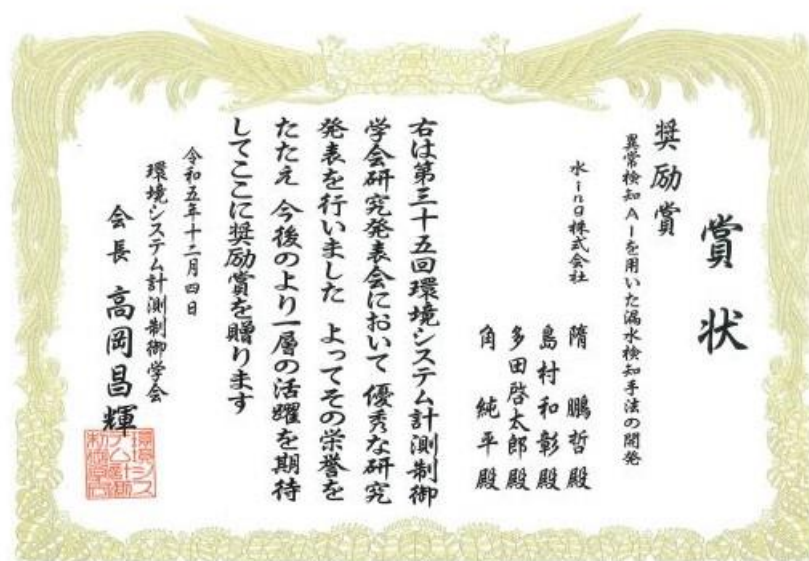 賞状
奨励賞
異常検知AIを用いた漏水検知手法の開発
水ing株式会社
隋 鵬哲殿
島村和彰殿
多田啓太郎殿
角 純平殿
右は第三十五回環境システム計測制御
学会研究発表会において 優秀な研究
発表を行いました よってその栄誉を
たたえ 今後のより一層の活躍を期待
してここに奨励賞を贈ります
令和五年十二月四日
環境システム計測制御学会
会長 高岡昌輝
環境シス
テム計測
制御学会